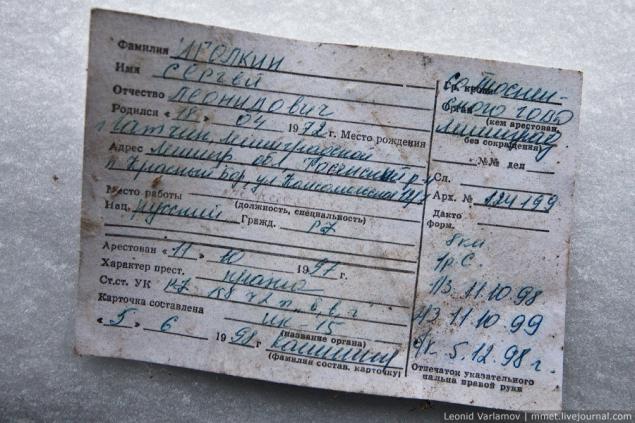 Фамилия Иголкин
Имя Сергей
Отчество Леонидович
Родился «18» 04 1972 г. Место рождения
г. Гатчина, Ленинградской
Адрес Ленингр. обл. Тосненский р-н
п. Красный Бор ул. Комсомольская
Место работы
(должность, специальность)
Нац. русский Гражд. РФ
Арестован «11» 10 1997 г.
Характер прест. кража
Ст.ст. УК
Карточка составлена ИК-15
(название органа)
«5» 6 1998 г.
(фамилия состав. карточку)
Гр. крови
Орган
(кем арестован,
без сокращения)
№№ дел
Сл.
Арх. № 124199
Дакто
форм.
1/3 11.10.98
11.10.99
5.12.98 г.
Отпечаток указательного
пальца правой руки
Leonid Varlamov | mmet.livejournal.com